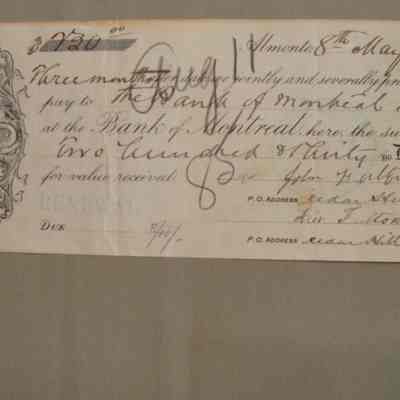 $ 230.00 Almonte 8th May
Three months after date we jointly and severally pro
pay to The Bank of Montreal
at the Bank of Montreal, here, the su
Two hundred & thirty
for value received John
Aug 11
RENEWAL
P. O. ADDRESS Cedar Hill
DUE
P. O. ADDRESS Cedar Hill